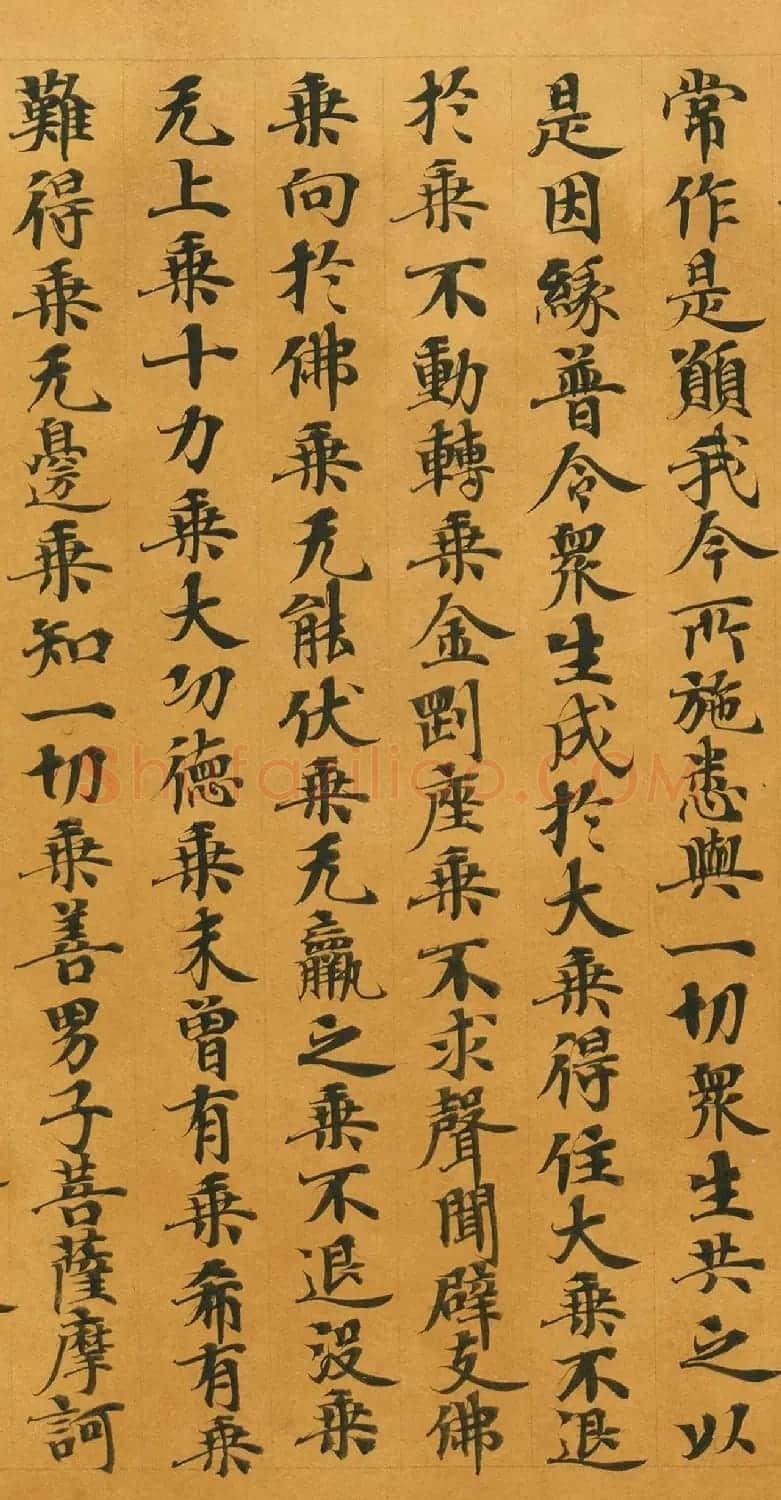 常作是願我今所施悉與一切眾生共之以
是因緣普令眾生成於大乘得住大乘不退
於乘不動轉乘金剛座乘不求聲聞辟支佛
乘向於佛乘无能伏乘无羸之乘不退沒乘
无上乘十力乘大功德乘未曾有乘希有乘
難得乘无邊乘知一切乘善男子菩薩摩訶